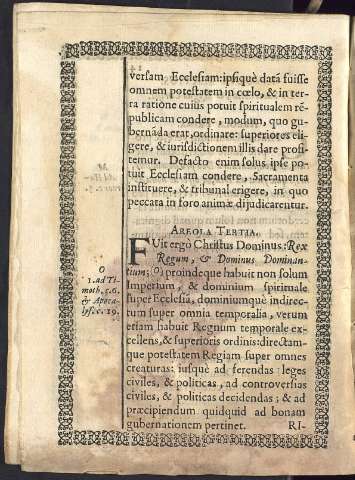 versam Ecclesiam: ipsiquè datā fuisse
omnem potestatem in cœlo, & in ter-
ra ratione cuius potuit spiritualem rē-
publicam condere, modum, quo gu-
bernāda erat, ordinare: superiores eli-
gere, & iurisdictionem illis dare profi-
temur. Defacto enim solus ipse po-
tuit Ecclesiam condere, Sacramenta
instituere, & tribunal erigere, in quo
peccata in foro animæ dijudicarentur.
AREOLA TERTIA.
FUit ergò Christus Dominus: Rex
Regum, & Dominus Dominan-
tium; (O) proinde que habuit non solum
Imperium, & dominium spirituale
super Ecclesiā, dominiumquè indirec-
tum super omnia temporalia, verum
etiam habuit Regnum temporale ex-
cellens, & superioris ordinis: directam-
que potestatem Regiam super omnes
creaturas: iusquè ad ferendas leges
civiles, & politicas, ad controversias
civiles, & politicas decidendas; & ad
præcipiendum quidquid ad bonam
gubernationem pertinet. RI-
O
1. Ad Ti-
moth. c. 6.
& Apoca-
lyps. c. 19.